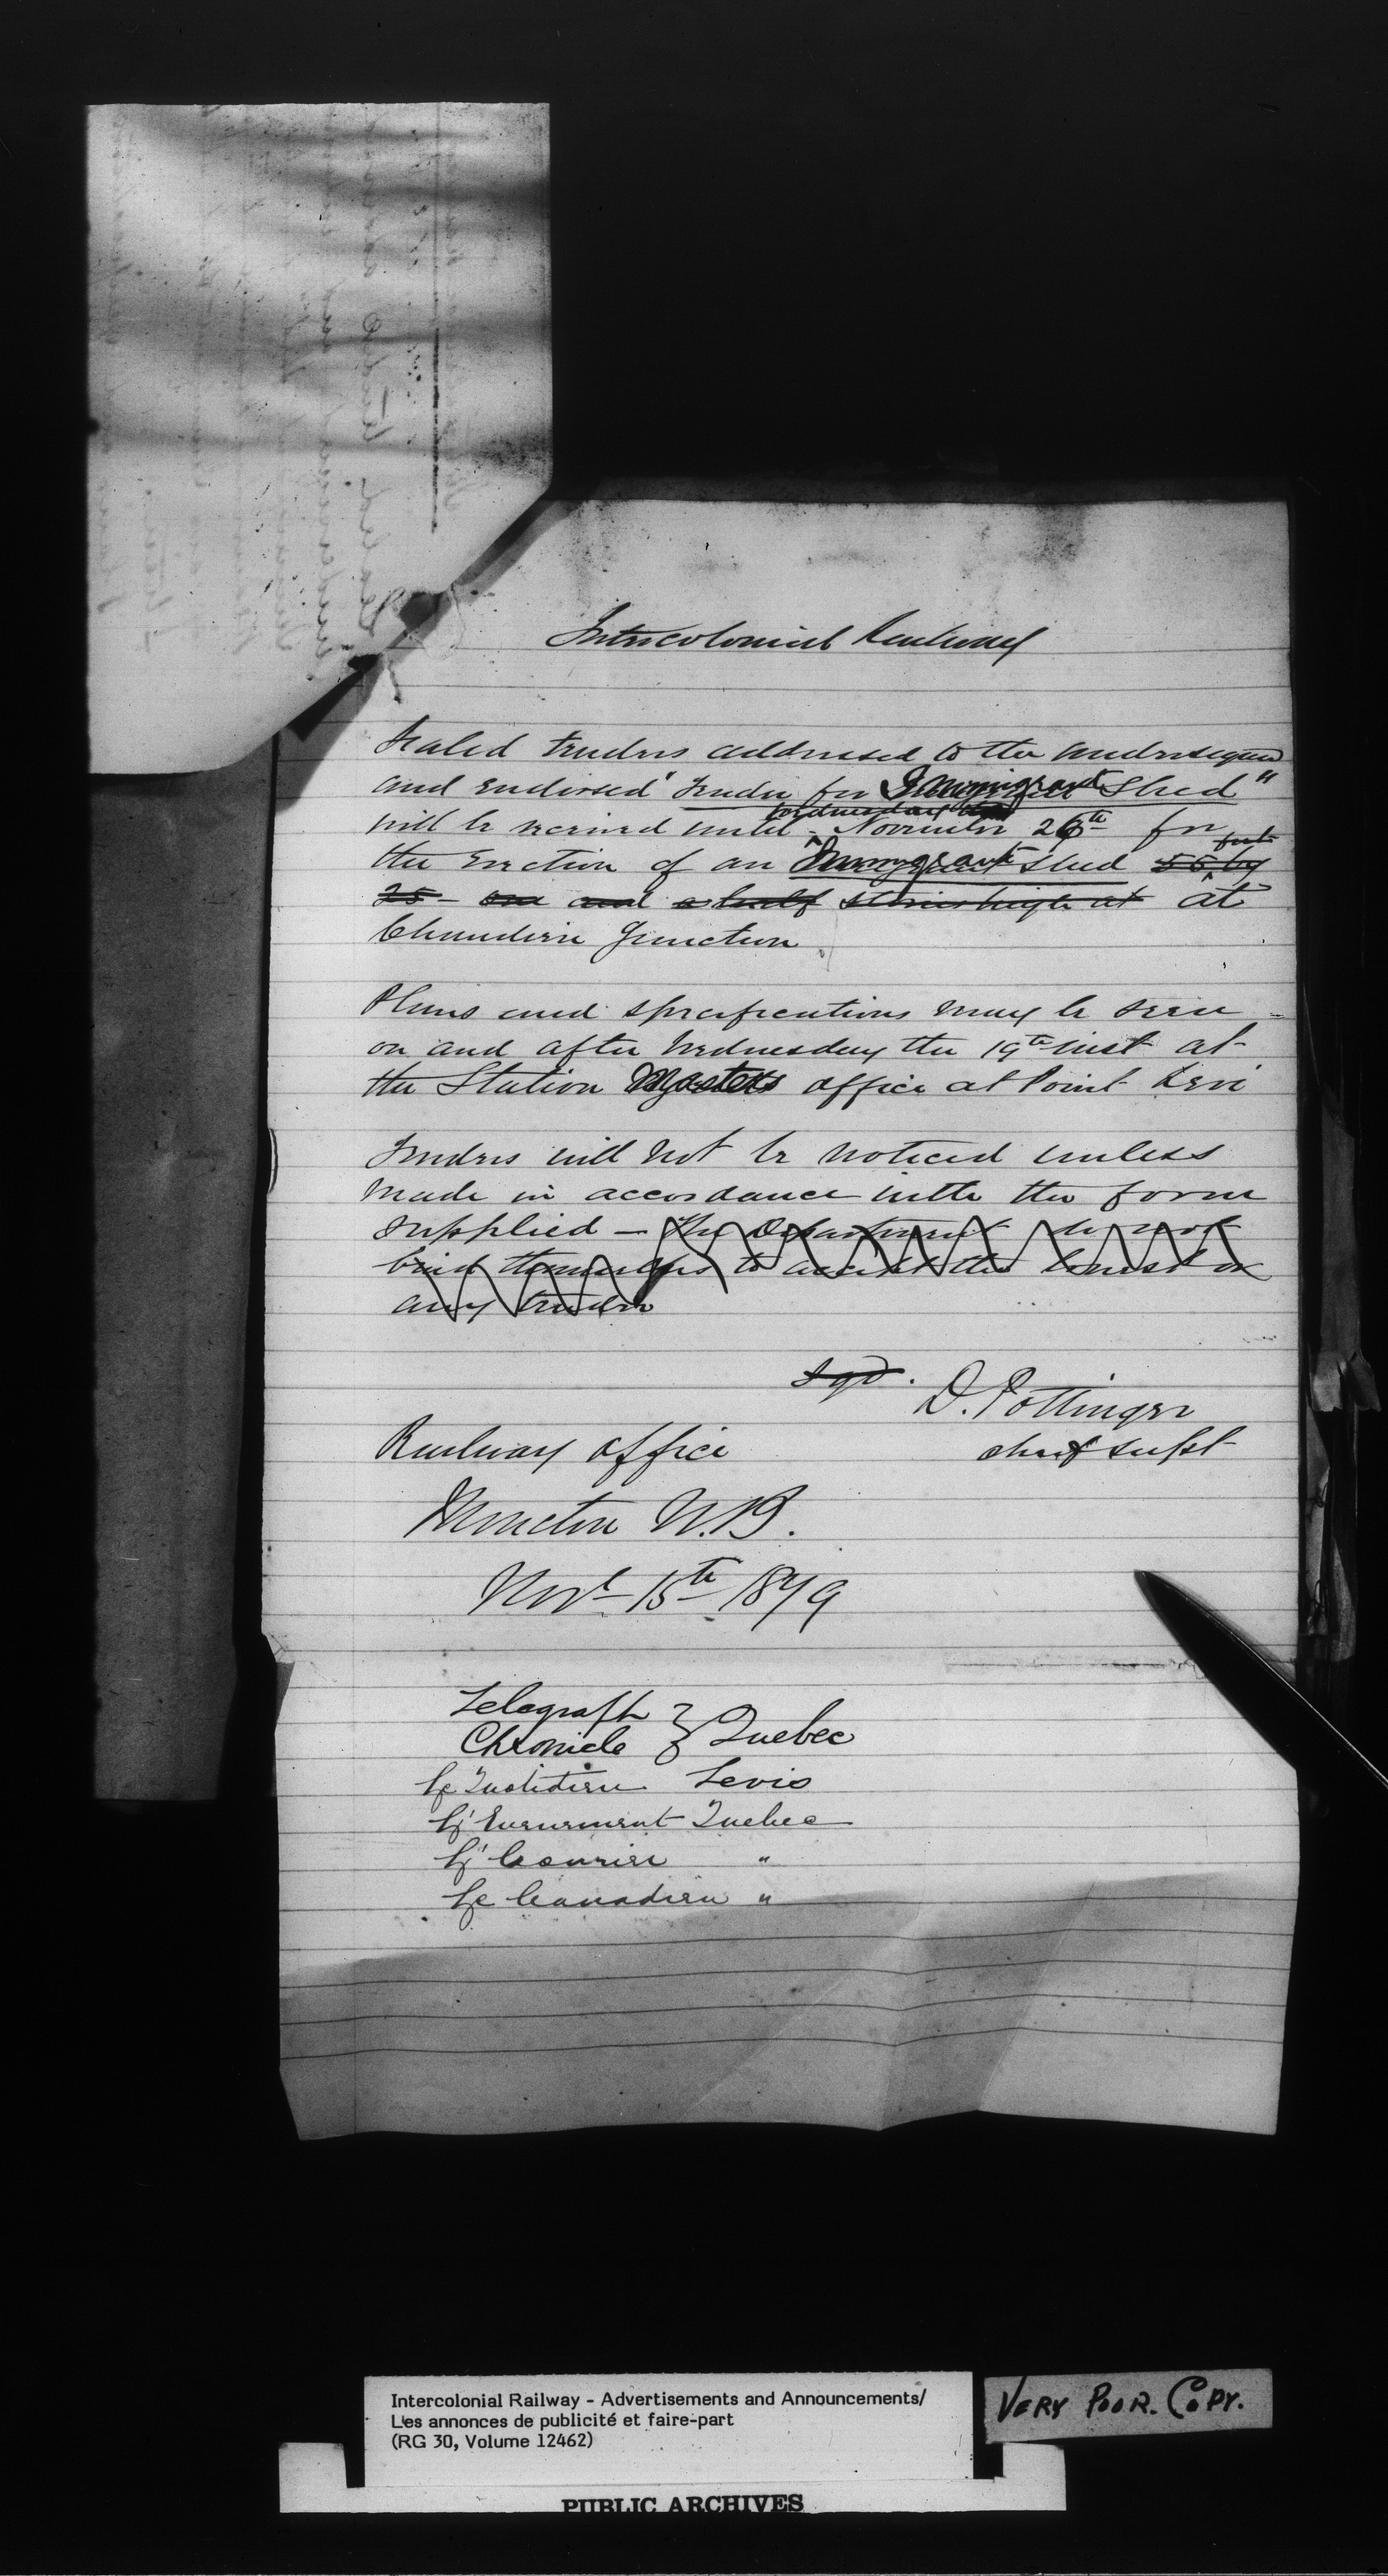 Intercolonial Railway
Sealed tenders addressed to the undersigned
and endorsed "Tender for Immigrant Shed"
Wednesday the
will be received until November 26th for
feet
the Erection of an Immigrant Shed 55 by
25 - one and a half stories high at at
Chaudiere Junction
Plans and specifications may be seen
on and after Wednesday the 19th inst at
the Station Masters office at Point Levi
Tenders will not be noticed unless
made in accordance with the form
supplied — The Department do not
bind themselves to accept the lowest or
any tender
sgd. D. Pottinger
Chief Supt
Railway office
Moncton N.B.
Nov 15th 1879
Telegraph } Quebec
Chronicle
Le Quotidien Levis
L'Evenement Quebec
L' Courier "
Le Canadien "
Intercolonial Railway - Advertisements and Announcements/
Les annonces de publicité et faire-part
(RG 30, Volume 12462)
VERY POOR. COPY.
PUBLIC ARCHIVES